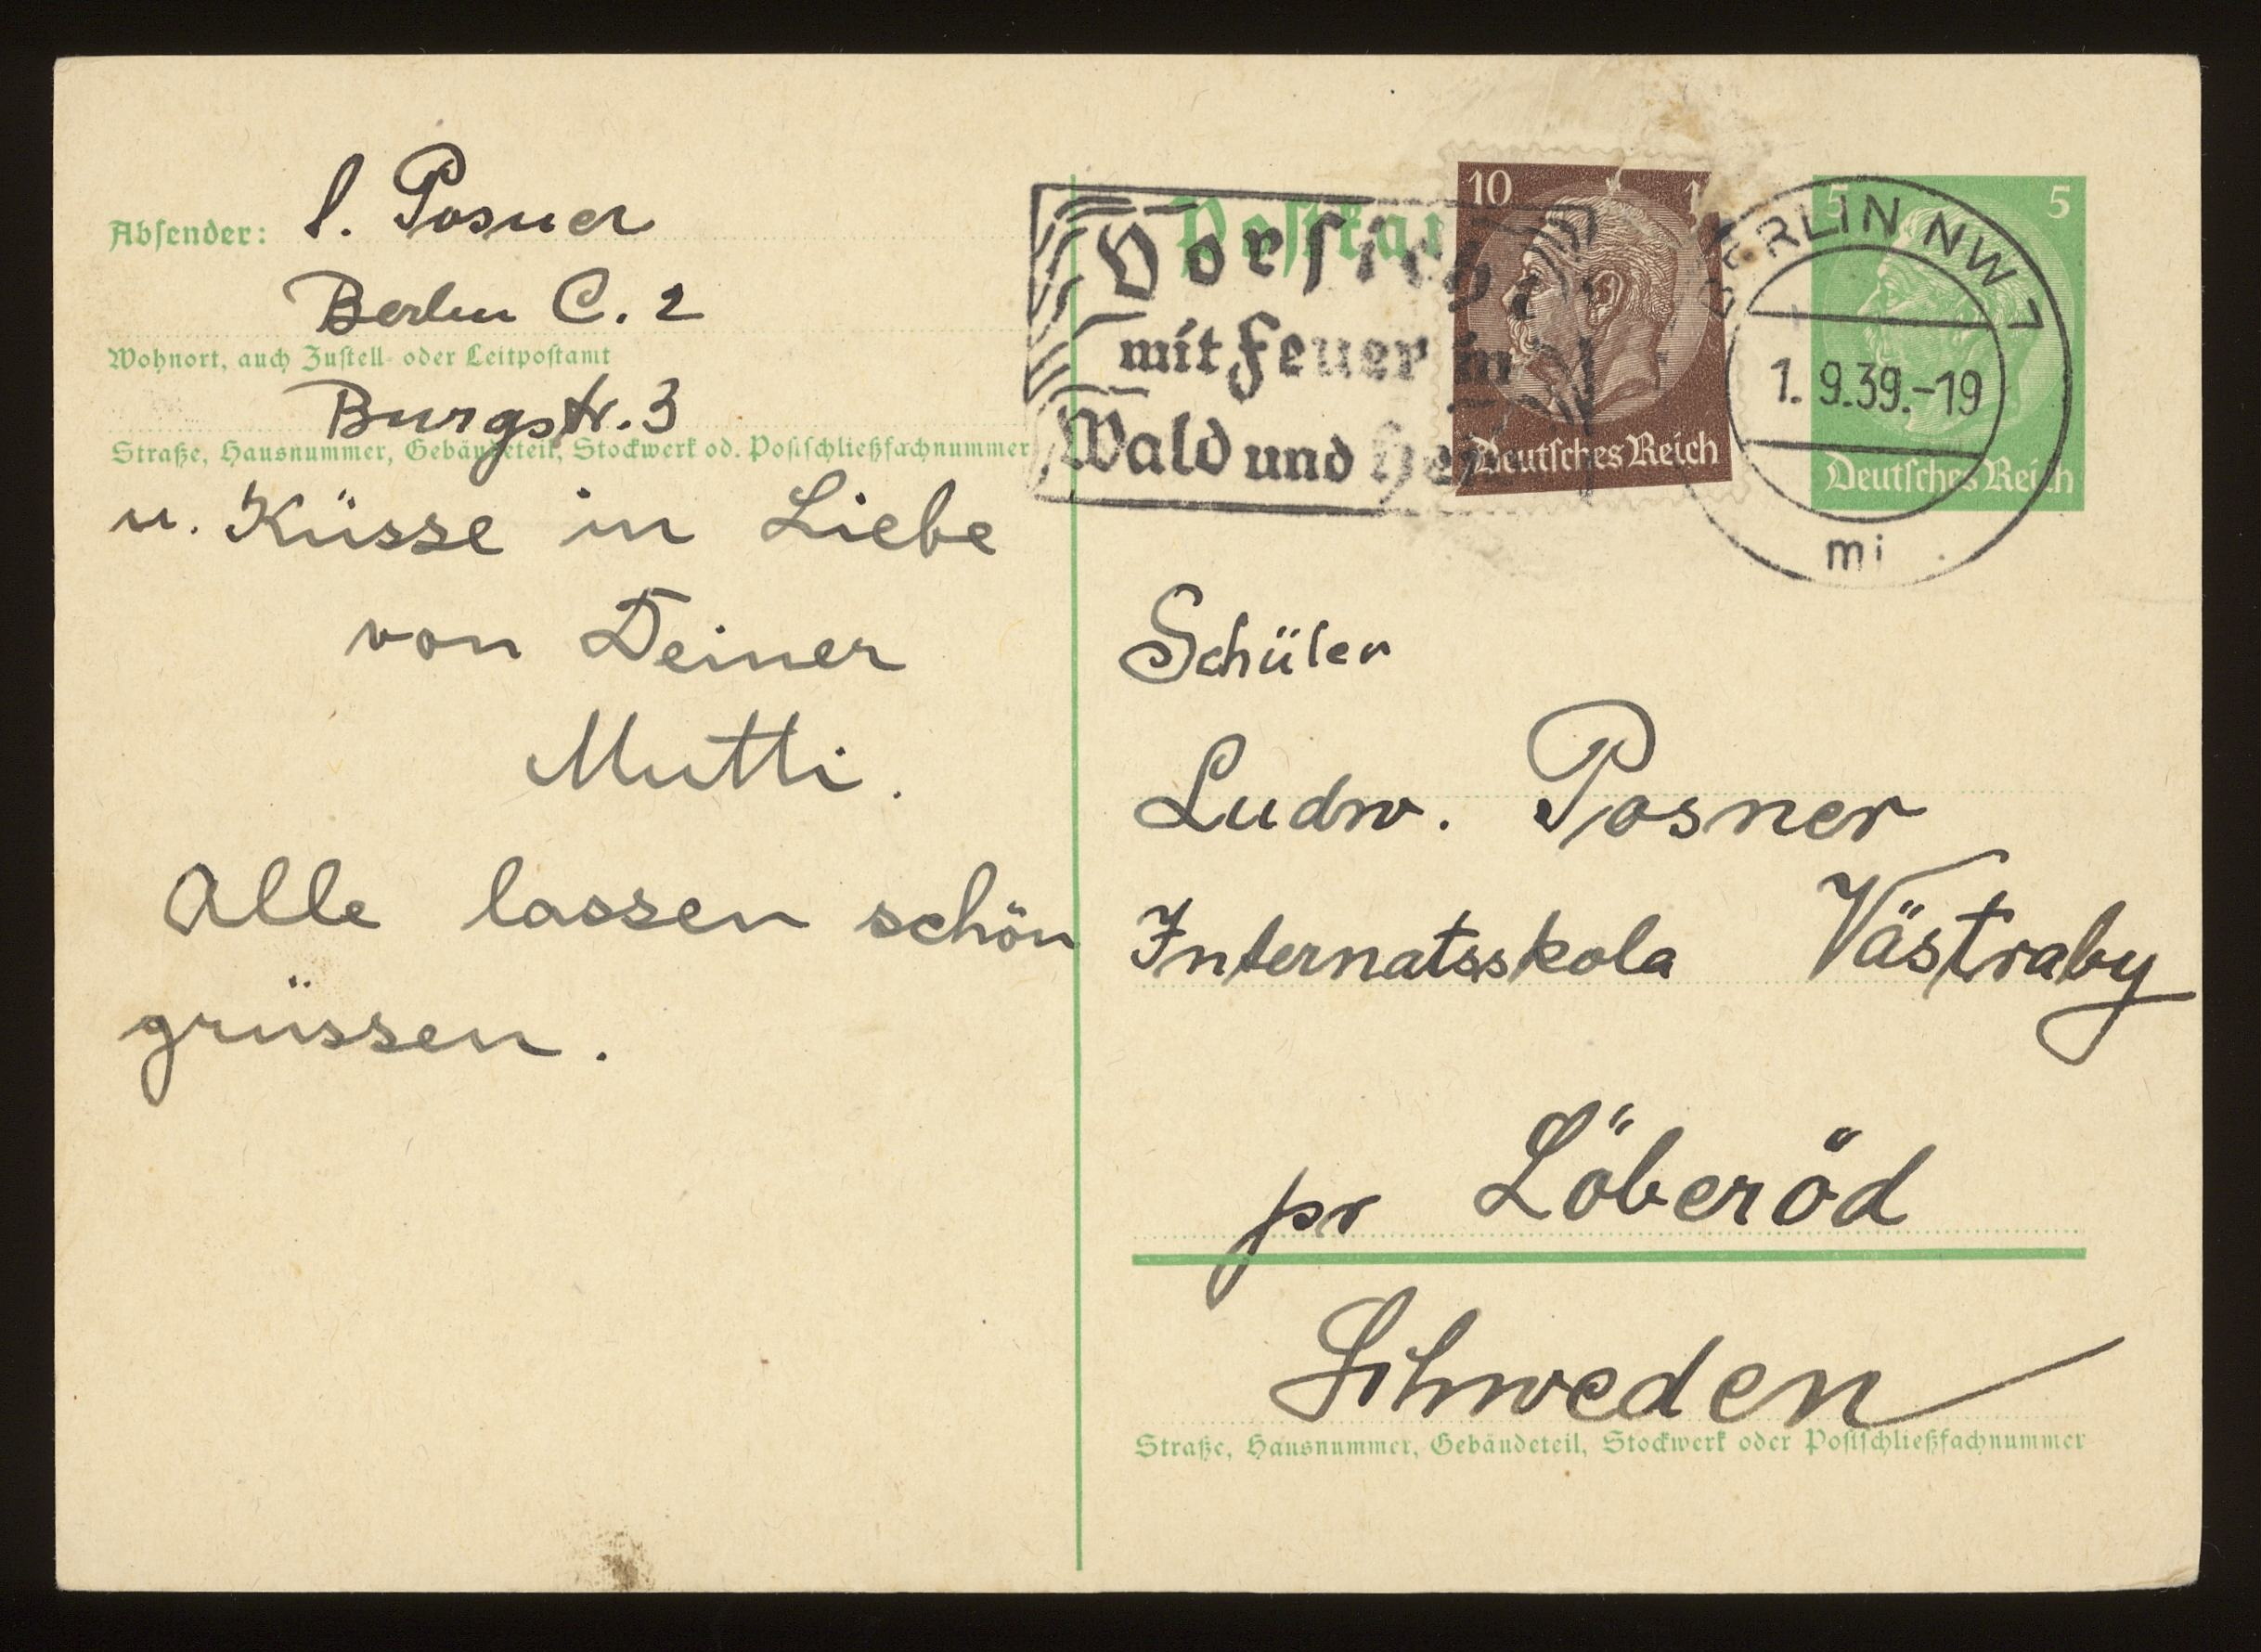 Absender: l. Posner
Berlin C. 2
Wohnort, auch Zustell- oder Leitpostamt
Burgstr. 3
Straße, Hausnummer, Gebäudeteil, Stockwerk od. Postschließfachnummer
u. Küsse in Liebe
von Deiner
Mutti.
Alle lassen schön
grüssen.
Vorsicht
mit Feuer in
Wald und
10
Deutsches Reich
BERLIN NW 7
1. 9.39.-19
mi
5 5
Deutsches Reich
Schüler
Ludw. Posner
Internatsskola Västraby
pr Löberöd
Schweden
Straße, Hausnummer, Gebäudeteil, Stockwerk oder Postschließfachnummer